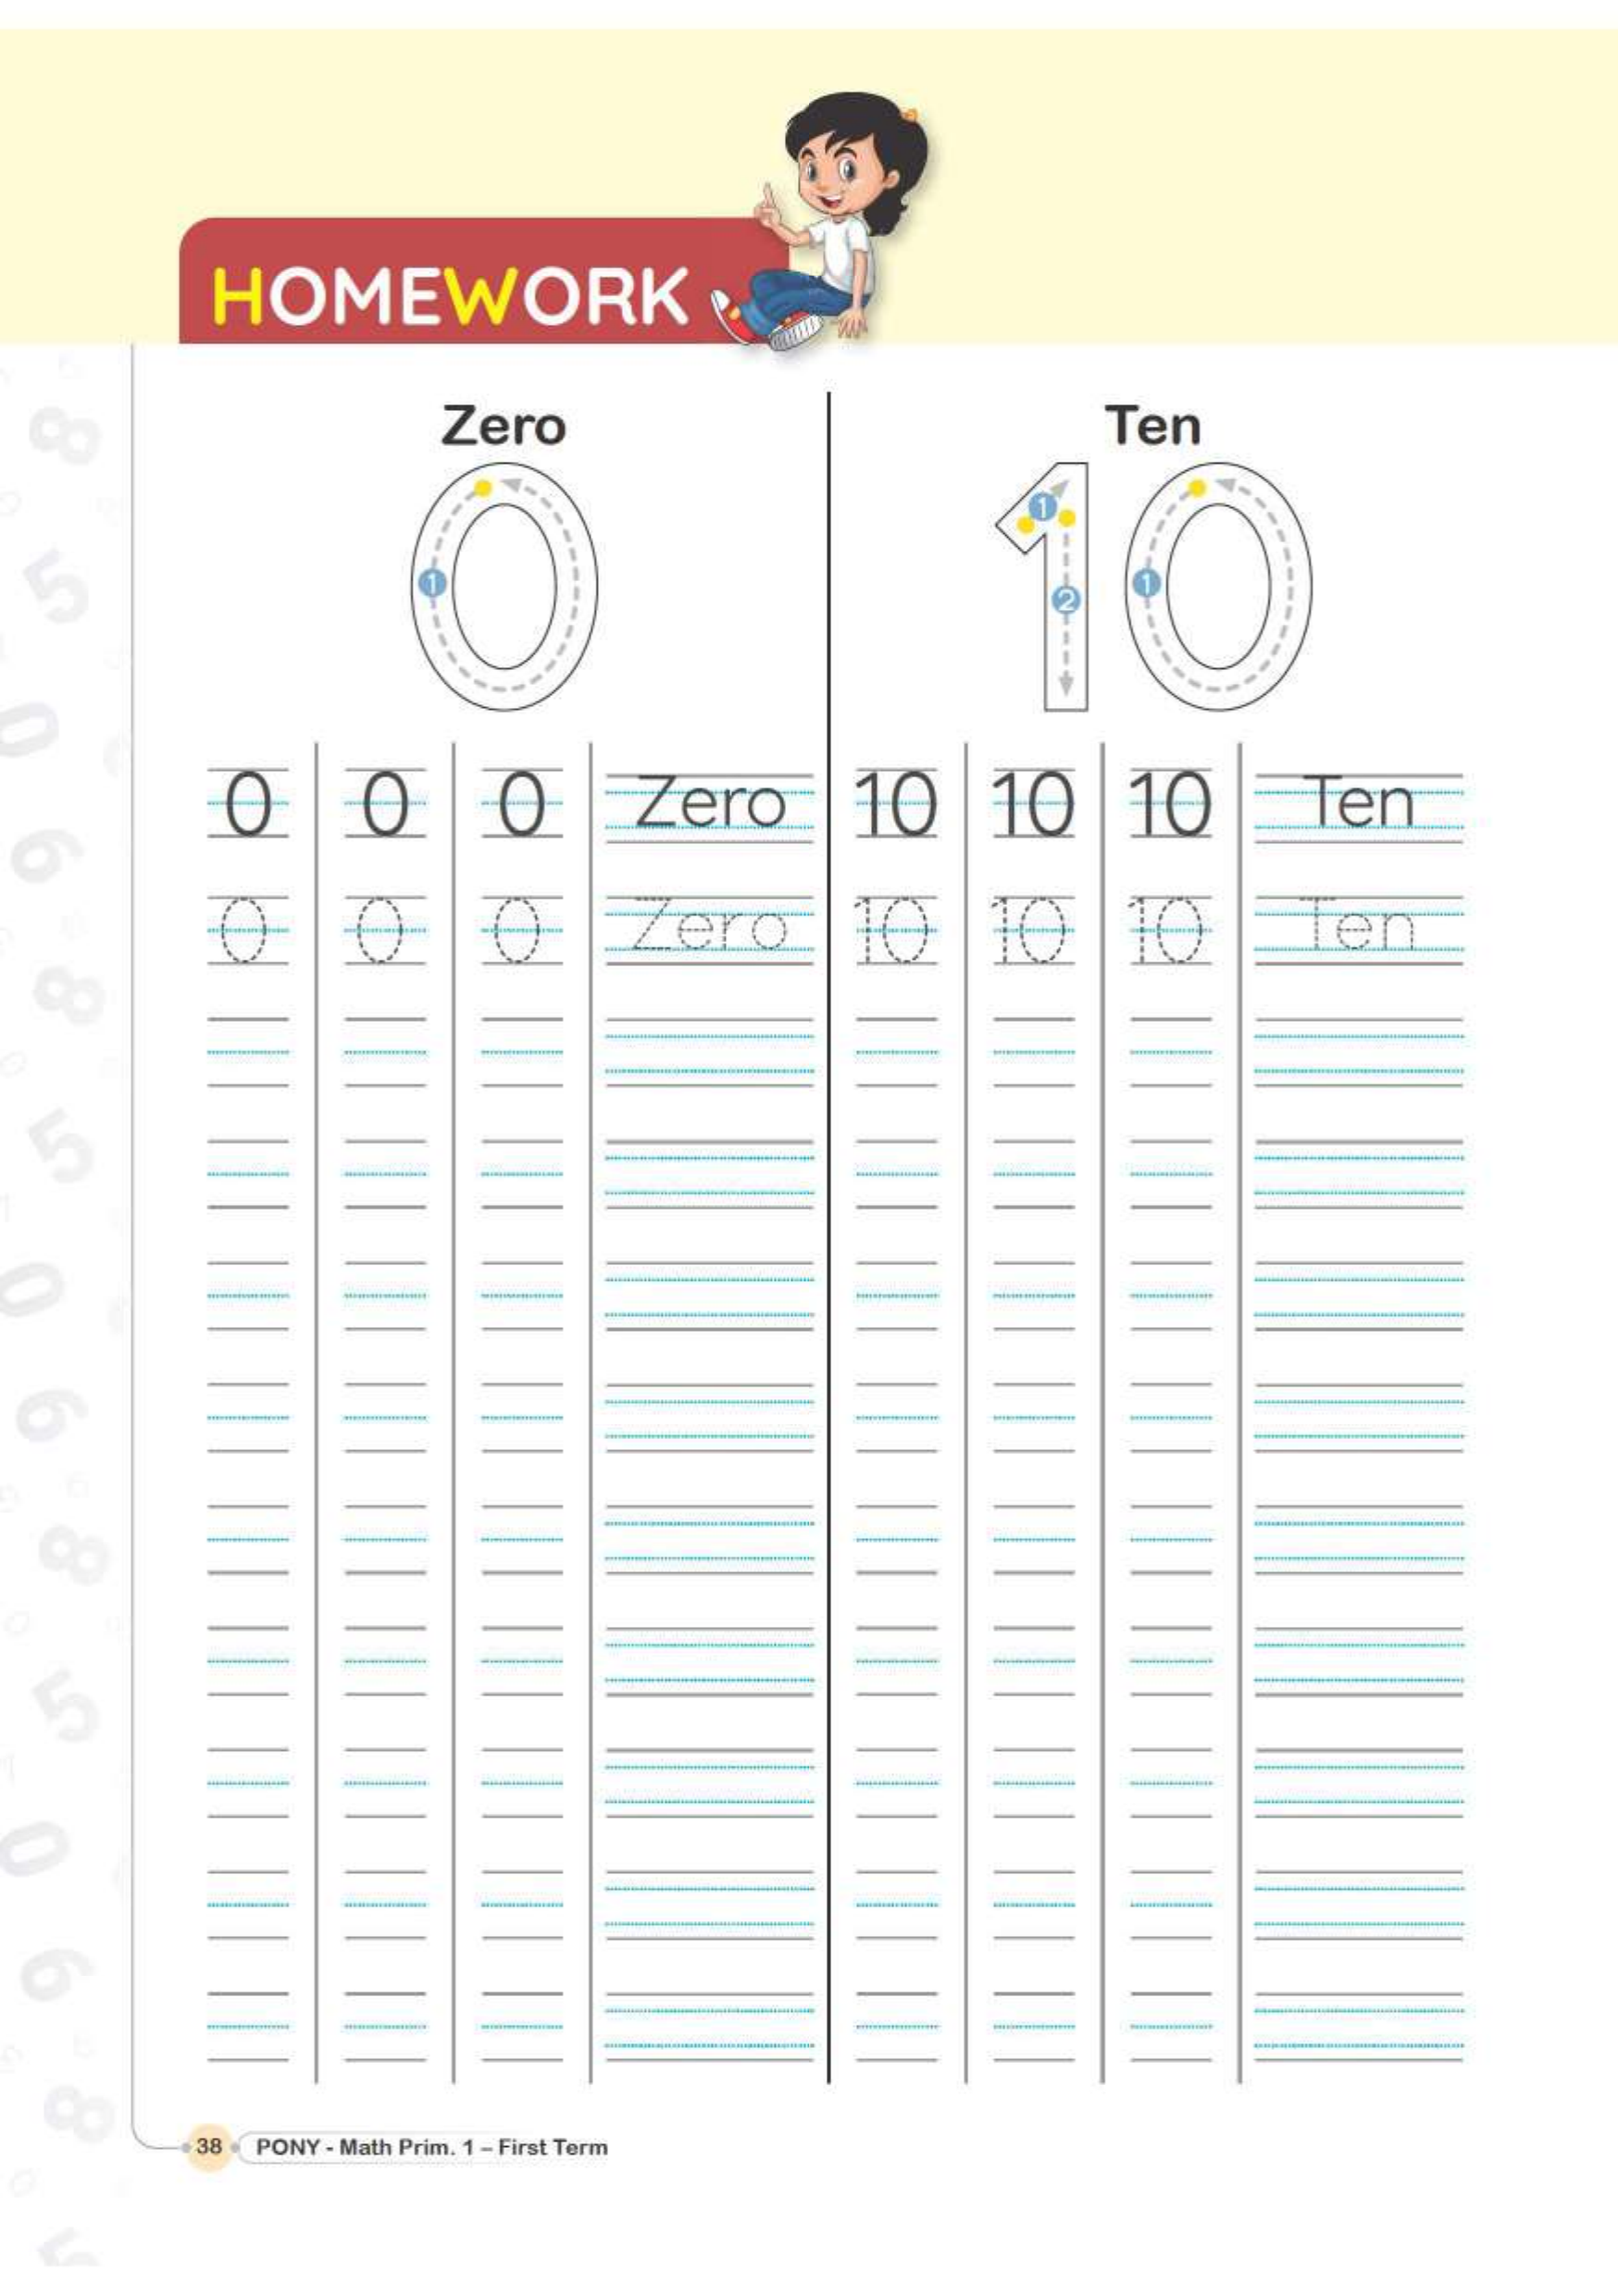 HOMEWORK
Zero
Ten
0
10
1
1
2
1
0 0 0 Zero 10 10 10 Ten
0 0 0 Zero 10 10 10 Ten
38 PONY - Math Prim. 1 – First Term